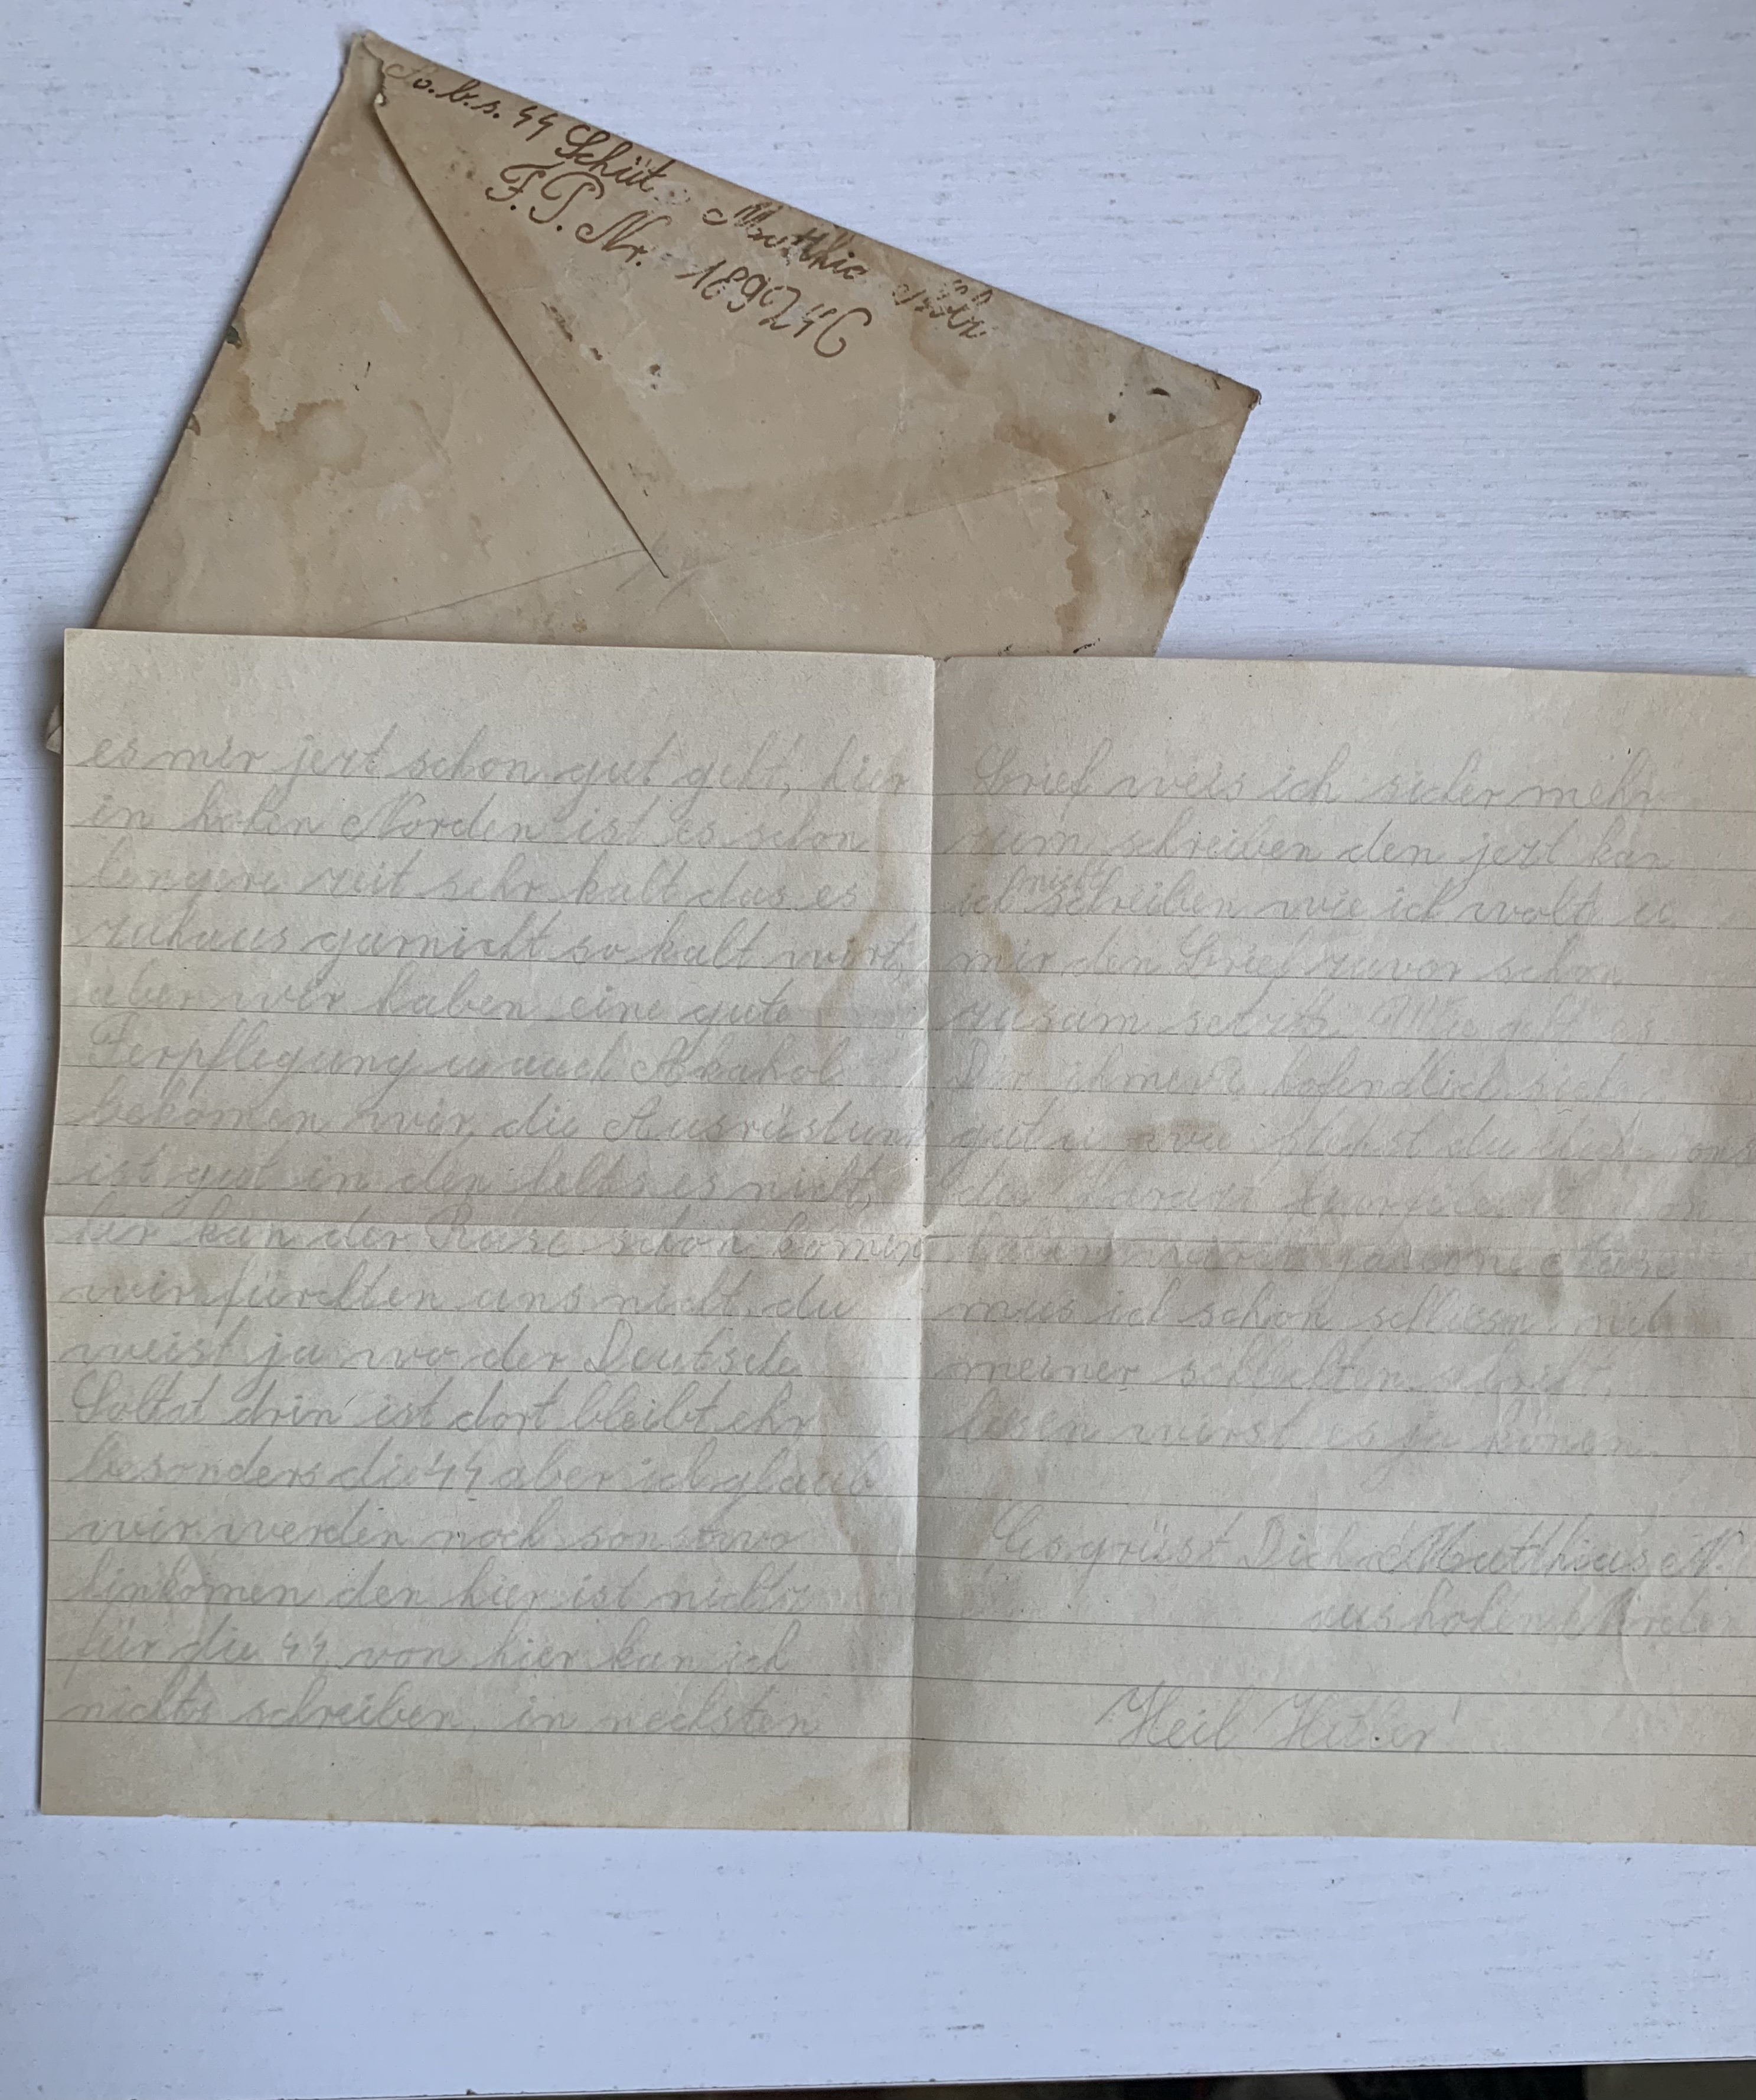 b.s. SS Schüt.
F.P. Nr. 18924C
es mir jezt schon gut geht, hier
in hohen Norden ist es schon
lengere zeit sehr kalt das es
zuhaus garnicht so kalt wirt,
aber wir haben eine gute
Ferpflegung u auch Alkahol
bekomen wir, die Ausrüstung
ist gut in den felts es nicht,
hir kan der Ruse schon komen
wir fürchten uns nicht, du
weist ja wo der Deutsche
Soltat drin ist dort bleibt ehr
besonders die SS aber ich glaub
wir werden noch sonstwo
hinkomen den hier ist nichts
für die SS von hier kan ich
nichts schreiben, in nechsten
Brief weis ich sicher mehr
zum schreiben den jezt kan
ich nicht schreiben wie ich wolt u.
mir den Brief zuvor schon
zusam setzte. Wie geht es
Dir ihmer? hofendlich sich
gut u wie du dich
mus ich schon schliesen mit
meiner schlechten schrift,
lesen wirst es ja könen.
Es grüst Dich Matthias N.
aus hohen Norden
Heil Hitler!